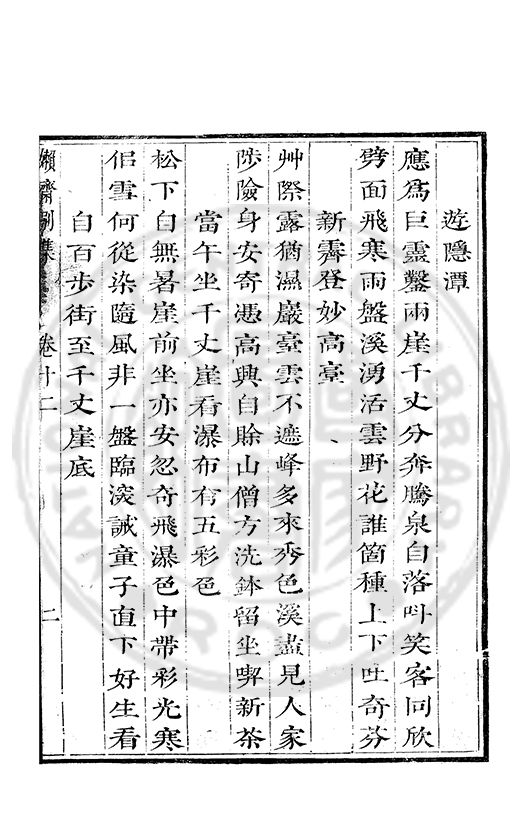 遊隱潭
應爲巨靈鑿兩崖千丈分奔騰泉自落叫笑客同欣
劈面飛寒雨盤溪湧活雲野花誰箇種上下吐奇芬
新霽登妙高臺
艸際露猶濕巖臺雲不遮峰多來秀色溪盡見人家
陟險身安寄憑高興自賒山僧方洗鉢留坐喫新茶
當午坐千丈崖看瀑布有五彩色
松下自無暑崖前坐亦安忽奇飛瀑色中帶彩光寒
侶雪何從染隨風非一盤臨深誡童子直下好生看
自百步街至千丈崖底
嬾齋別集
卷十二
二